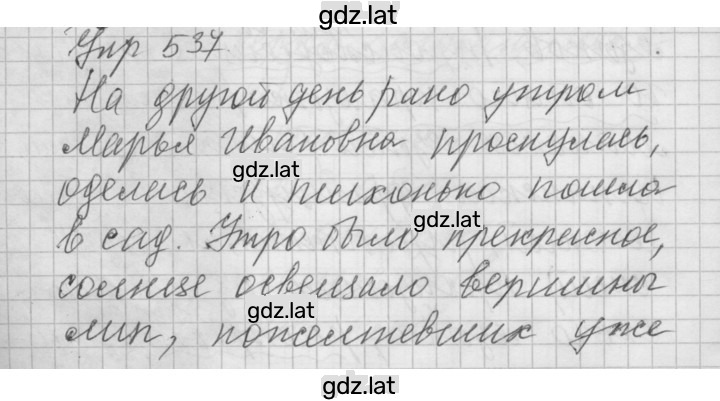 gdz.lat
Упр 537
На другой день рано утром
Марья Ивановна проснулась,
gdz.lat
оделась и тихонько пошла
gdz.lat
в сад. Утро было прекрасное,
солнце освещало вершины
лип, пожелтевших уже
gdz.lat